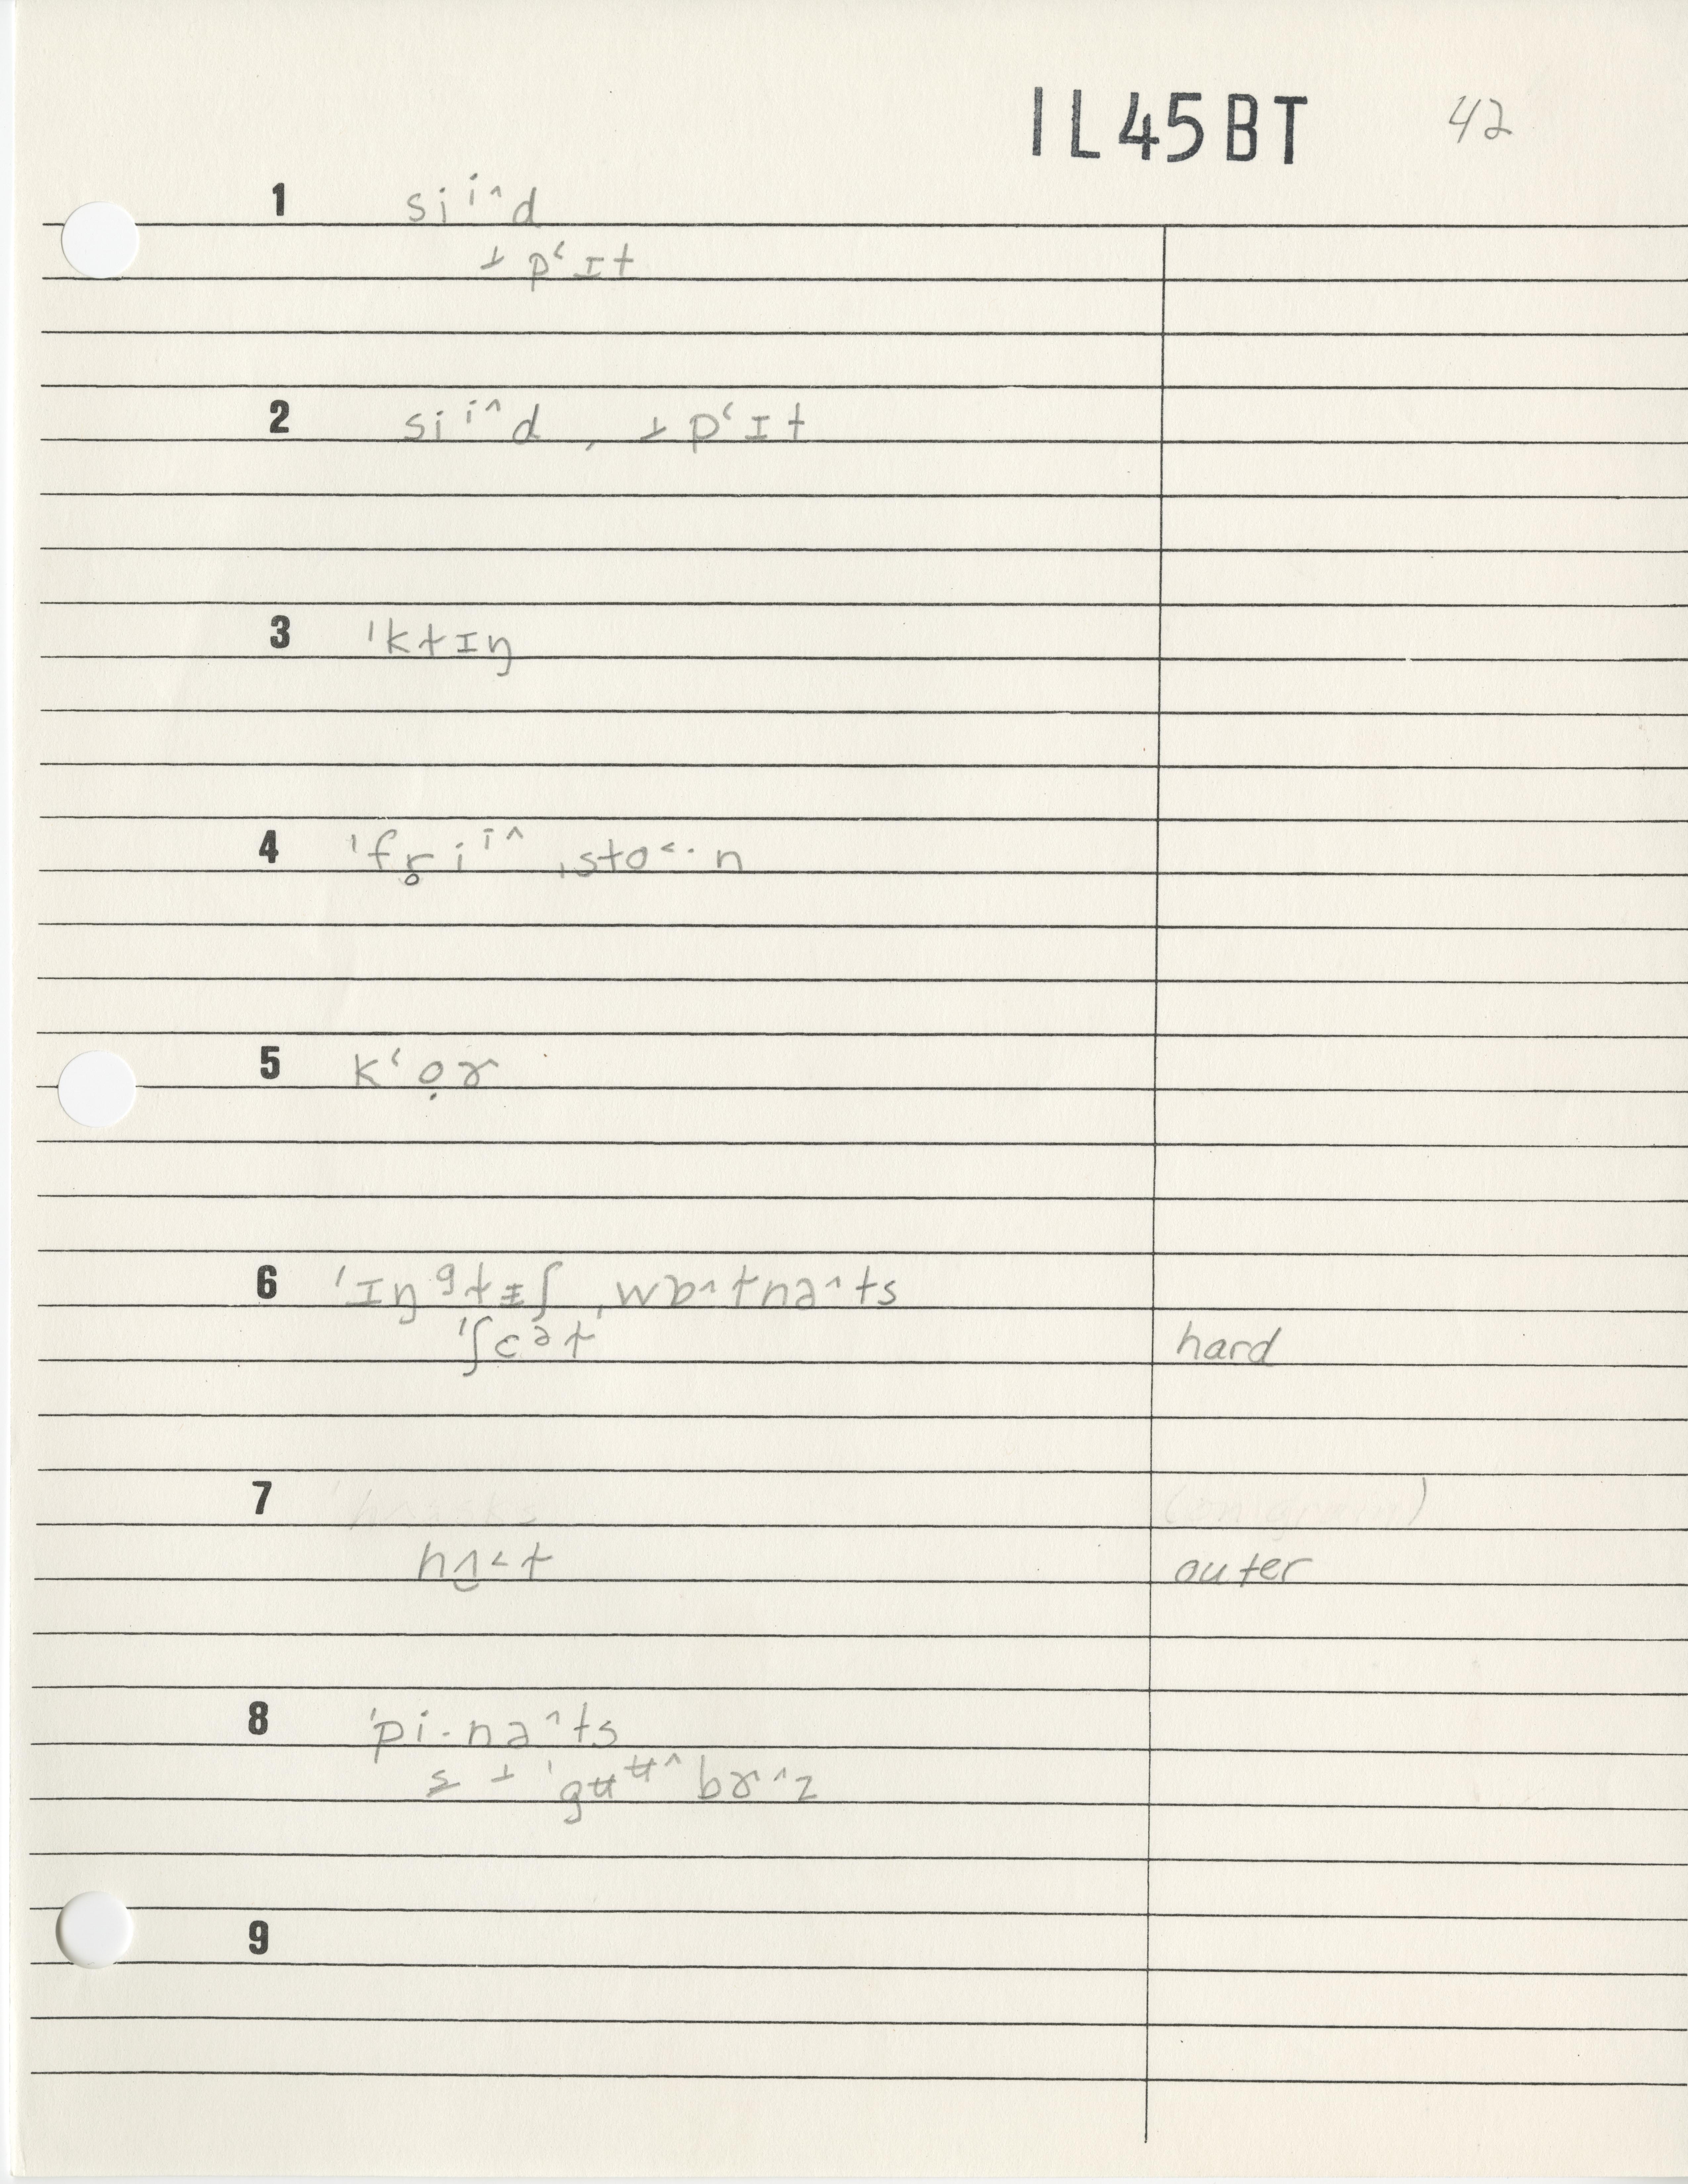 IL45BT 42
1 siⁱ^d
⊥ pʻɪt
2 siⁱ^d , ⊥ pʻɪt
3 ˈkɫɪŋ
4 ˈfr̥iⁱ^ ˌsto<·n
5 kʻọɚ
6 ˈɪŋᵍɫɪ̵ʃ ˌwɒ^ɫnə^ts
ˈʃɛᵊɫ hard
7
hʌ̮<ɫ outer
8 ˈpi·nə^ts
s ⊥ ˈgʉᶶ^bɚ^z
9